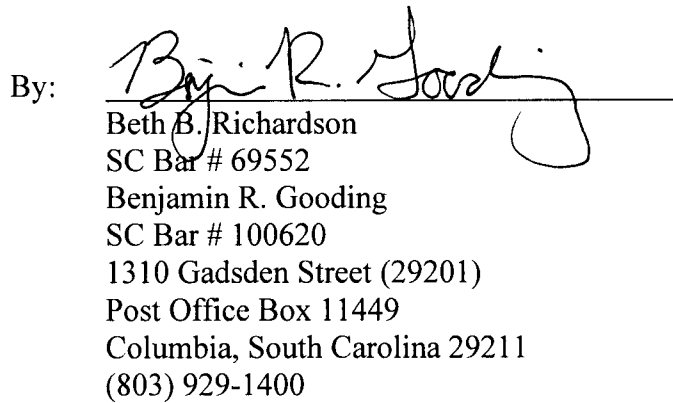 By: Benjamin R. Gooding
Beth B. Richardson
SC Bar # 69552
Benjamin R. Gooding
SC Bar # 100620
1310 Gadsden Street (29201)
Post Office Box 11449
Columbia, South Carolina 29211
(803) 929-1400